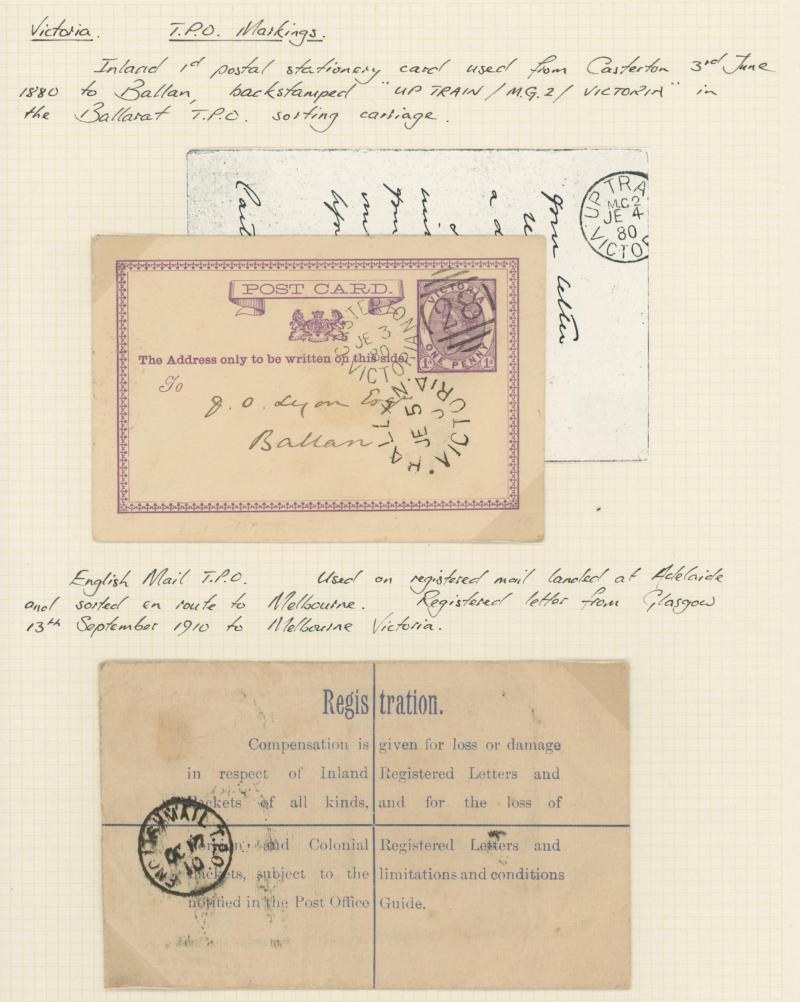 Victoria. T.P.O. Markings.
Inland 1d postal stationery card used from Casterton 3rd June
1880 to Ballan, backstamped "UP TRAIN / M.G.2 / VICTORIA" in
the Ballarat T.P.O. sorting carriage.
your letter
a d
UP TRA
M.C.2
JE 4
80
VICTO
POST CARD.
VICTORIA
28
ONE PENNY
1d 1d
CASTERTON
JE 3
80
VICTORIA
The Address only to be written on this side.
To
J. O. Lyon Esq
Ballan
BALLAN
JE 5
VICTORIA
English Mail T.P.O. Used on registered mail landed at Adelaide
and sorted en route to Melbourne. Registered letter from Glasgow
13th September 1910 to Melbourne Victoria.
Registration.
Compensation is given for loss or damage
in respect of Inland Registered Letters and
Packets of all kinds, and for the loss of
Foreign and Colonial Registered Letters and
Packets, subject to the limitations and conditions
notified in the Post Office Guide.
ENGLISH MAIL T.P.O.
10